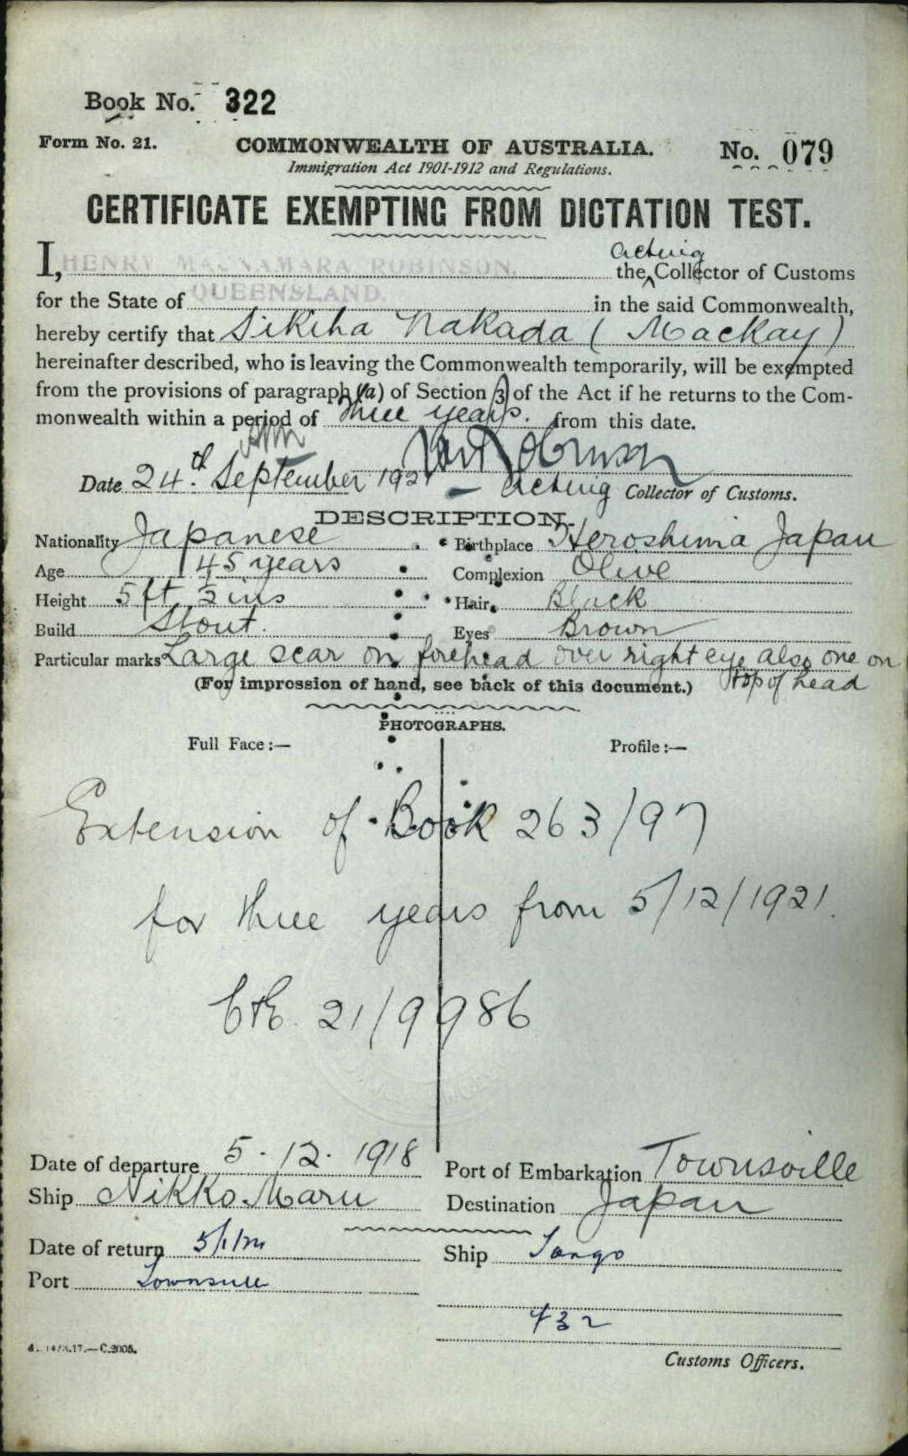 Book No. 322
Form No. 21. COMMONWEALTH OF AUSTRALIA. No. 079
Immigration Act 1901-1912 and Regulations.
CERTIFICATE EXEMPTING FROM DICTATION TEST.
I, HENRY MACNAMARA ROBINSON, the acting Collector of Customs
for the State of QUEENSLAND. in the said Commonwealth,
hereby certify that Sikiha Nakada (Mackay)
hereinafter described, who is leaving the Commonwealth temporarily, will be exempted
from the provisions of paragraph (a) of Section 3 of the Act if he returns to the Com-
monwealth within a period of three years. from this date.
Date 24th September 1921 Acting Collector of Customs.
DESCRIPTION.
Nationality Japanese Birthplace Heroshima Japan
Age 45 years Complexion Olive
Height 5 ft 5 ins Hair Black
Build Stout. Eyes Brown
Particular marks Large scar on forehead over right eye also one on
top of head
(For impression of hand, see back of this document.)
PHOTOGRAPHS.
Full Face :— Profile :—
Extension of Book 263/97
for three years from 5/12/1921.
21/9986
Date of departure 5.12.1918 Port of Embarkation Townsville
Ship Nikko Maru Destination Japan
Date of return Ship Tango
Port Townsville
432
C.2005.
Customs Officers.